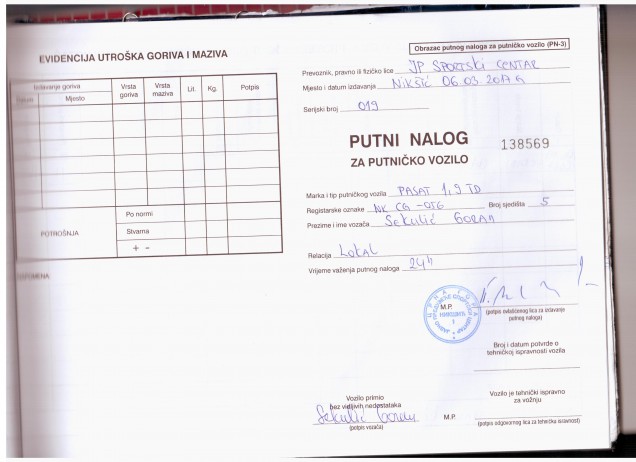 EVIDENCIJA UTROŠKA GORIVA I MAZIVA
Izdavanje goriva
Datum
Mjesto
Vrsta goriva
Vrsta maziva
Lit.
Kg.
Potpis
POTROŠNJA
Po normi
Stvarna
+ -
NAPOMENA
Obrazac putnog naloga za putničko vozilo (PN-3)
Prevoznik, pravno ili fizičko lice JP SPORTSKI CENTAR
Mjesto i datum izdavanja NIKŠIĆ 06.03.2017 g
Serijski broj 019
PUTNI NALOG
ZA PUTNIČKO VOZILO
138569
Marka i tip putničkog vozila PASAT 1,9 TD
Registarske oznake NK CG-055 Broj sjedišta 5
Prezime i ime vozača Sekulić GORAN
Relacija LOKAL
Vrijeme važenja putnog naloga 24h
M.P.
(potpis ovlašćenog lica za izdavanje
putnog naloga)
НИКШИЋ
Broj i datum potvrde o
tehničkoj ispravnosti vozila
Vozilo primio
bez vidljivih nedostataka
Sekulić Goran
(potpis vozača)
Vozilo je tehnički ispravno
za vožnju
M.P.
(potpis odgovornog lica za tehničku ispravnost)